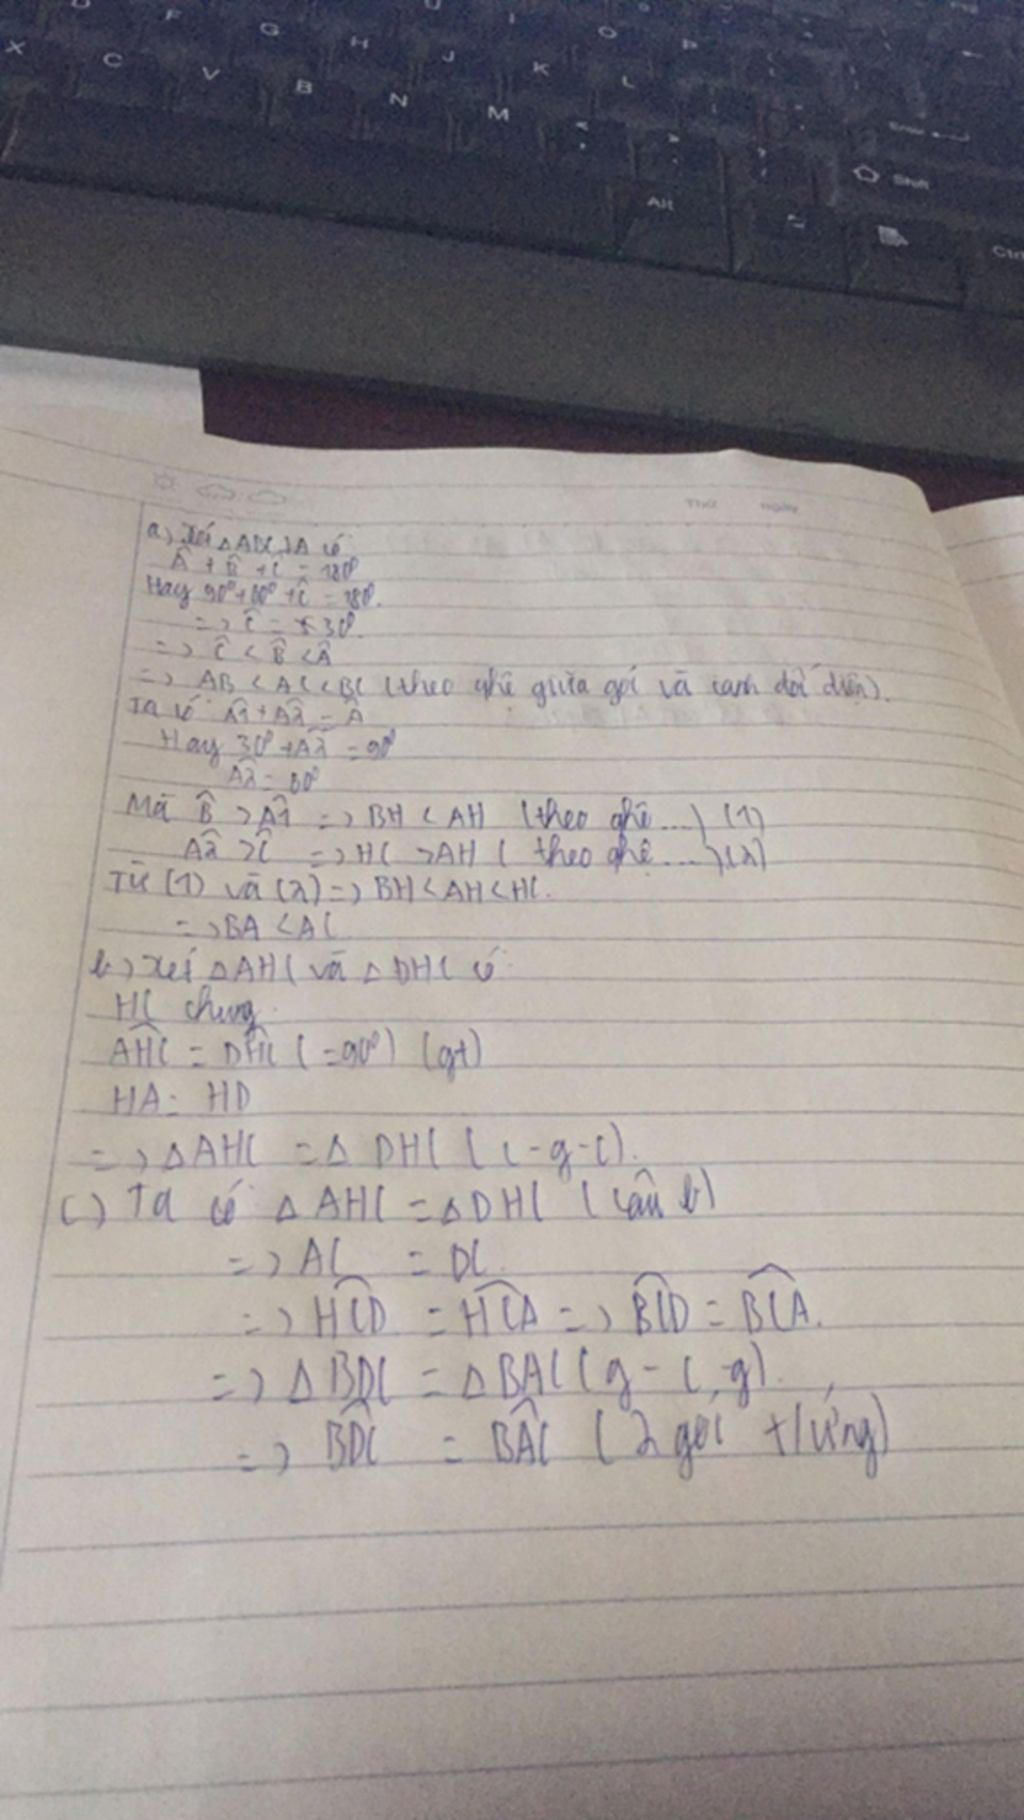 X C V B N M
F G H J K L
U I O P
Enter
Shift
Alt
Ctrl
Thứ Ngày
a) Xét △ABC ⊥A có
Â + B̂ + Ĉ = 180⁰
Hay 90⁰+60⁰ +Ĉ = 180⁰.
=> Ĉ = 30⁰.
=> Ĉ < B̂ < Â
=> AB < AC < BC (theo qhệ giữa góc và cạnh đối diện).
Ta có Â1 + Â2 = Â
Hay 30⁰ + Â2 = 90⁰
Â2 = 60⁰
Mà B̂ > Â1 => BH < AH (theo qhệ....) (1)
Â2 > Ĉ => HC > AH ( theo qhệ....) (2)
Từ (1) và (2) => BH < AH < HC.
=> BA < AC
b) Xét △AHC và △DHC có
HC chung
AHC = DHC (=90⁰) (gt)
HA = HD
=> △AHC = △DHC (c-g-c).
c) Ta có △AHC = △DHC (câu b)
=> AC = DC
=> HCD = HCA => BCD = BCA.
=> △BDC = △BAC (g-c,g).
=> BDC = BAC (2 góc t/ứng)